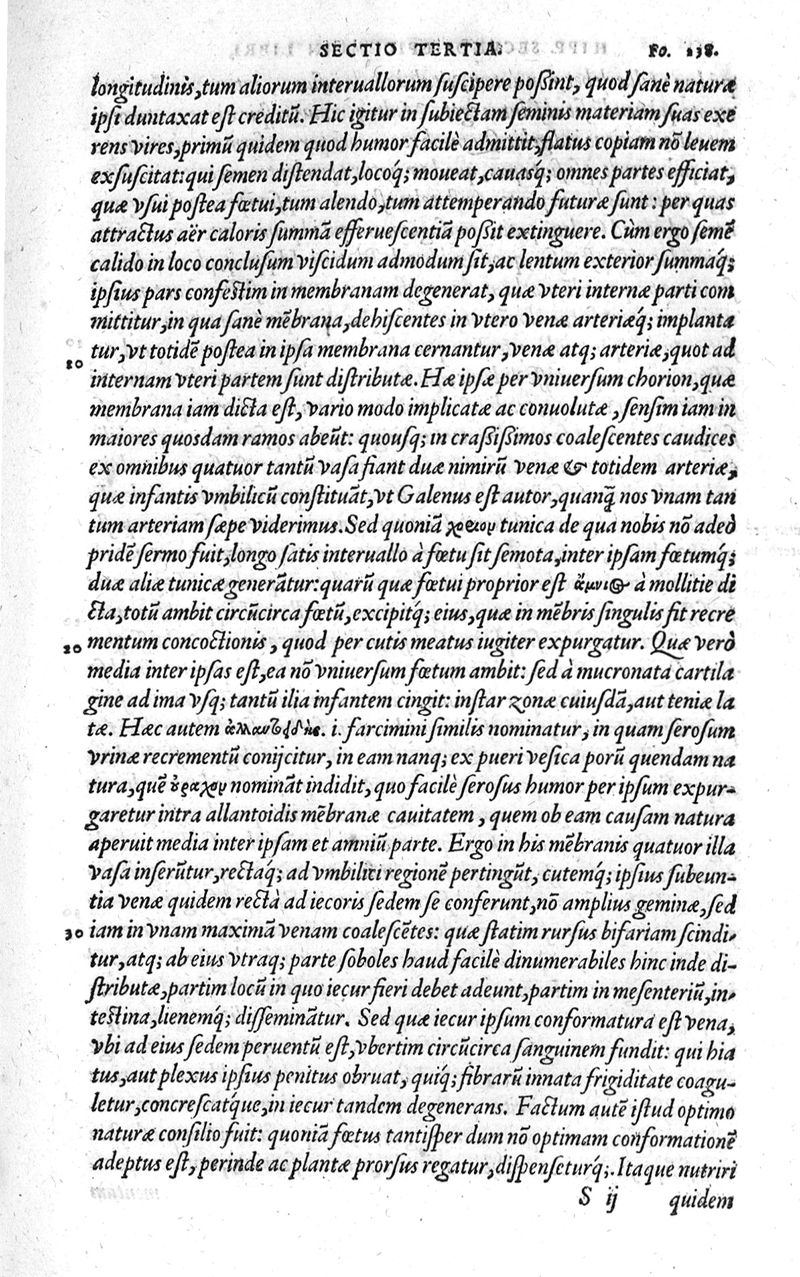 SECTIO TERTIA. Fo. 238.
longitudinis, tum aliorum interuallorum ſuſcipere poßint, quod ſanè naturæ
ipſi duntaxat eſt creditũ. Hic igitur in ſubiectam ſeminis materiam ſuas exe
rens vires, primũ quidem quod humor facilè admittit, flatus copiam nõ leuem
exſuſcitat: qui ſemen diſtendat, locoq́; moueat, cauasq́; omnes partes efficiat,
quæ vſui poſtea fœtui, tum alendo, tum attemperando futuræ ſunt: per quas
attractus aër caloris ſummã efferueſcentiã poſsit extinguere. Cùm ergo ſemẽ
calido in loco concluſum viſcidum admodum ſit, ac lentum exterior ſummaq́;
ipſius pars confeſtim in membranam degenerat, quæ vteri internæ parti com
mittitur, in qua ſanè mẽbrana, dehiſcentes in vtero venæ arteriæq́; implanta
tur, vt totidẽ poſtea in ipſa membrana cernantur, venæ atq; arteriæ, quot ad
10
internam vteri partem ſunt diſtributæ. Hæ ipſæ per vniuerſum chorion, quæ
membrana iam dicta eſt, vario modo implicatæ ac conuolutæ, ſenſim iam in
maiores quosdam ramos abeũt: quouſq; in craßißimos coaleſcentes caudices
ex omnibus quatuor tantũ vaſa fiant duæ nimirũ venæ & totidem arteriæ,
quæ infantis vmbilicũ conſtituãt, vt Galenus eſt autor, quanq̃ nos vnam tan
tum arteriam ſæpe viderimus. Sed quoniã χοριον tunica de qua nobis nõ adeò
pridẽ ſermo fuit, longo ſatis interuallo à fœtu ſit ſemota, inter ipſam fœtumq́;
duæ aliæ tunicæ generãtur: quarũ quæ fœtui proprior eſt ἄμνιος à mollitie di
cta, totũ ambit circũcirca fœtũ, excipitq́; eius, quæ in mẽbris ſingulis fit recre
20 mentum concoctionis, quod per cutis meatus iugiter expurgatur. Quæ verò
media inter ipſas eſt, ea nõ vniuerſum fœtum ambit: ſed à mucronata cartila
gine ad ima vſq; tantũ ilia infantem cingit: inſtar zonæ cuiuſdã, aut teniæ la
tæ. Hæc autem ἀλλαντοειδὴς. i. farcimini ſimilis nominatur, in quam ſeroſum
vrinæ recrementũ conijcitur, in eam nanq; ex pueri veſica porũ quendam na
tura, quẽ ὀυραχον nominãt indidit, quo facilè ſeroſus humor per ipſum expur-
garetur intra allantoidis mẽbranæ cauitatem, quem ob eam cauſam natura
aperuit media inter ipſam et amniũ parte. Ergo in his mẽbranis quatuor illa
vaſa inſerũtur, rectaq́; ad vmbilici regionẽ pertingũt, cutemq́; ipſius ſubeun-
tia venæ quidem rectà ad iecoris ſedem ſe conferunt, nõ amplius geminæ, ſed
30 iam in vnam maximã venam coaleſcẽtes: quæ ſtatim rurſus bifariam ſcindi-
tur, atq; ab eius vtraq; parte ſoboles haud facilè dinumerabiles hinc inde di-
ſtributæ, partim locũ in quo iecur fieri debet adeunt, partim in meſenteriũ, in-
teſtina, lienemq́; diſſeminãtur. Sed quæ iecur ipſum conformatura eſt vena,
vbi ad eius ſedem peruentũ eſt, vbertim circũcirca ſanguinem fundit: qui hia
tus, aut plexus ipſius penitus obruat, quiq́; fibrarũ innata frigiditate coagu-
letur, concreſcatq́ue, in iecur tandem degenerans. Factum autẽ iſtud optimo
naturæ conſilio fuit: quoniã fœtus tantiſper dum nõ optimam conformationẽ
adeptus eſt, perinde ac plantæ prorſus regatur, diſpenſeturq́;. Itaque nutriri
S ij quidem